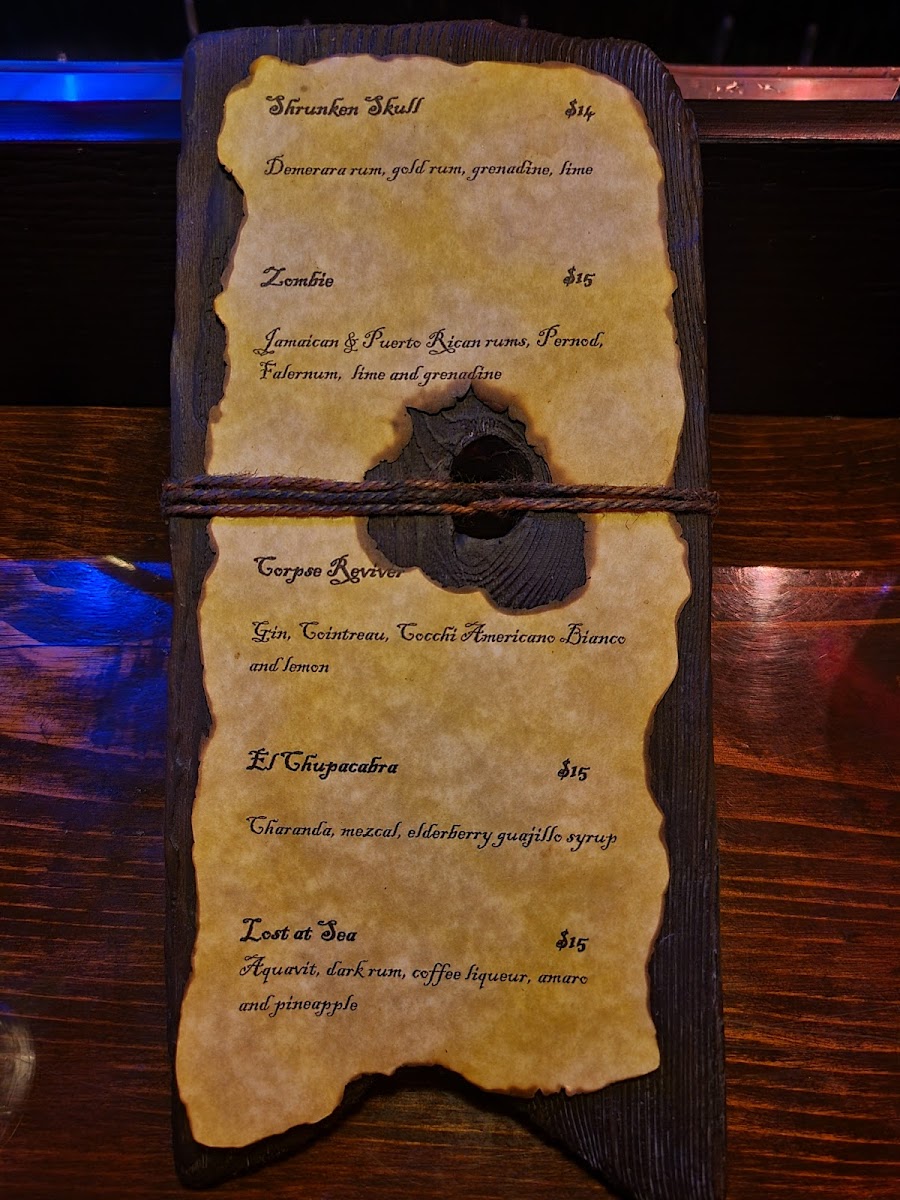 Shrunken Skull $14
Demerara rum, gold rum, grenadine, lime
Zombie $15
Jamaican & Puerto Rican rums, Pernod,
Falernum, lime and grenadine
Corpse Reviver
Gin, Cointreau, Cocchi Americano Bianco
and lemon
El Chupacabra $15
Charanda, mezcal, elderberry guajillo syrup
Lost at Sea $15
Aquavit, dark rum, coffee liqueur, amaro
and pineapple